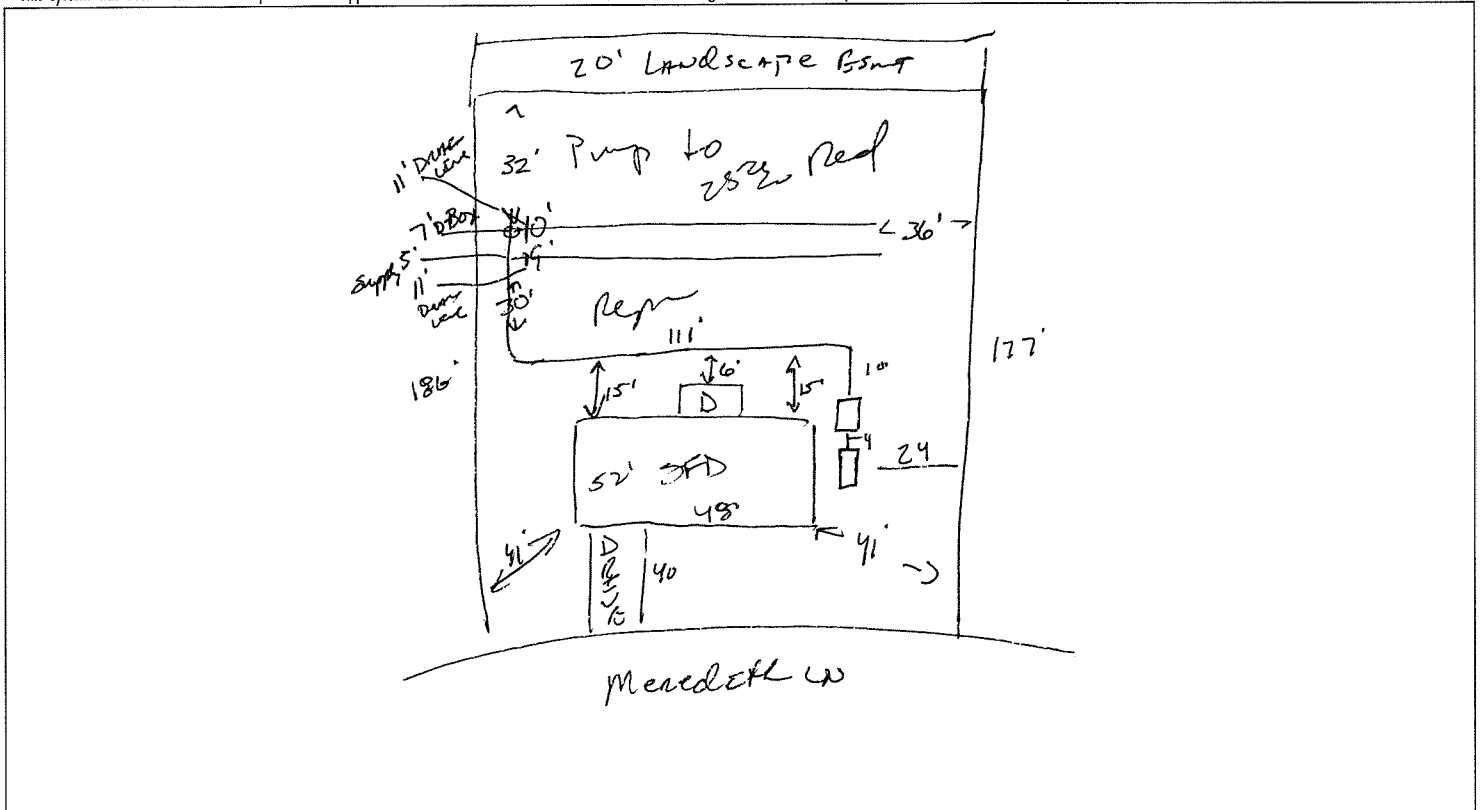 20' LANDSCAPE ESMT
32' Pump to
25% Red
11' DRAIN LINE
7' D BOX
10'
< 36' >
Supply 5'
9'
11'
30'
111'
186'
177'
15'
6'
15'
10
D
4
24
52' SFD
48'
41'
41'
DRIVE
40
Meredeth LN